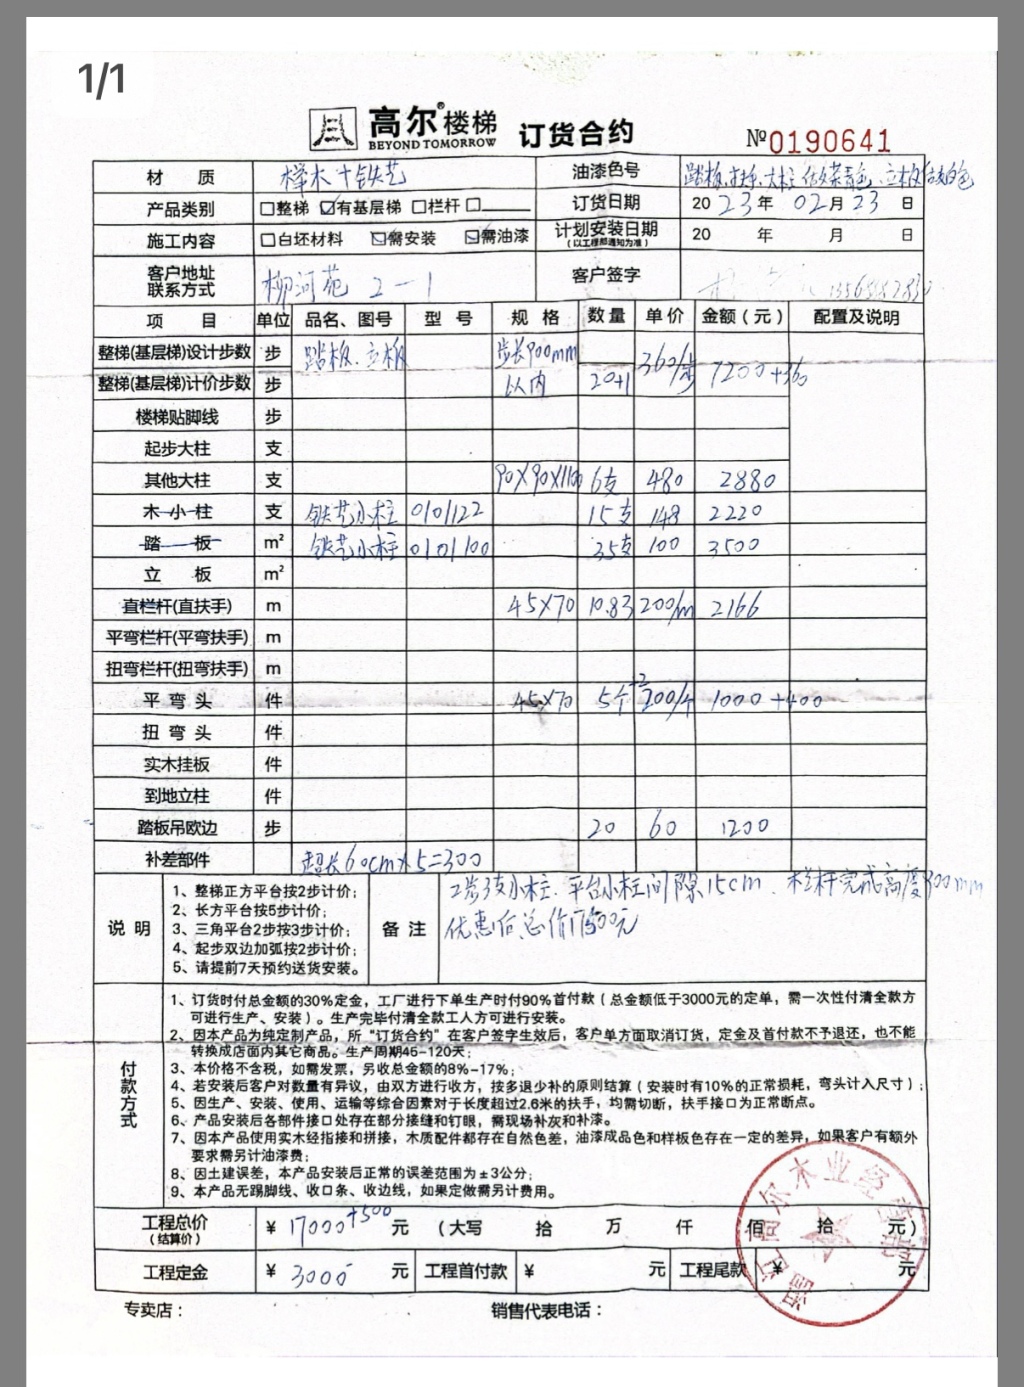 1/1
高尔®楼梯 订货合约
BEYOND TOMORROW
№0190641
材 质 榉木+铁艺 油漆色号 踏板、扶手、大柱 仿文菜青色、立板仿古白色
产品类别 □整梯 ☑有基层梯 □栏杆 □ 订货日期 2023年 02月 23 日
施工内容 □白坯材料 ☑需安装 ☑需油漆 计划安装日期 (以工程部通知为准) 20 年 月 日
客户地址 联系方式 柳河苑 2-1 客户签字
项 目 单位 品名、图号 型 号 规 格 数量 单价 金额(元) 配置及说明
整梯(基层梯)设计步数 步 踏板、立板 步长900mm
整梯(基层梯)计价步数 步 以内 20+1 360/步 7200+360
楼梯贴脚线 步
起步大柱 支
其他大柱 支 90X90X1100 6支 480 2880
木小柱 支 铁艺小柱 0101122 15支 148 2220
踏 板 m² 铁艺小柱 0101100 35支 100 3500
立 板 m²
直栏杆(直扶手) m 45X70 10.83 200/m 2166
平弯栏杆(平弯扶手) m
扭弯栏杆(扭弯扶手) m
平 弯 头 件 45X70 5个+2 200/个 1000+400
扭 弯 头 件
实木挂板 件
到地立柱 件
踏板吊欧边 步 20 60 1200
补差部件 超长60cm×5=300
说 明
1、整梯正方平台按2步计价;
2、长方平台按5步计价;
3、三角平台2步按3步计价;
4、起步双边加弧按2步计价;
5、请提前7天预约送货安装。
备 注
2步3支小柱、平台小柱间隙15cm、栏杆完成高度900mm
优惠后总价17500元
付款方式
1、订货时付总金额的30%定金，工厂进行下单生产时付90%首付款（总金额低于3000元的定单，需一次性付清全款方
可进行生产、安装）。生产完毕付清全款工人方可进行安装。
2、因本产品为纯定制产品，所“订货合约”在客户签字生效后，客户单方面取消订货，定金及首付款不予退还，也不能
转换成店面内其它商品。生产周期45-120天;
3、本价格不含税，如需发票，另收总金额的8%-17%;
4、若安装后客户对数量有异议，由双方进行收方，按多退少补的原则结算（安装时有10%的正常损耗，弯头计入尺寸）;
5、因生产、安装、使用、运输等综合因素对于长度超过2.6米的扶手，均需切断，扶手接口为正常断点。
6、产品安装后各部件接口处存在部分接缝和钉眼，需现场补灰和补漆。
7、因本产品使用实木经指接和拼接，木质配件都存在自然色差，油漆成品色和样板色存在一定的差异，如果客户有额外
要求需另计油漆费;
8、因土建误差，本产品安装后正常的误差范围为±3公分;
9、本产品无踢脚线、收口条、收边线，如果定做需另计费用。
工程总价 (结算价) ￥17000+500 元 (大写 拾 万 仟 佰 拾 元)
工程定金 ￥3000 元 工程首付款 ￥ 元 工程尾款 ￥ 元
专卖店： 销售代表电话：